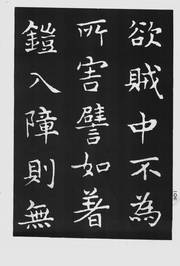 欲賊中不為
所害譬如着
鎧入障則無